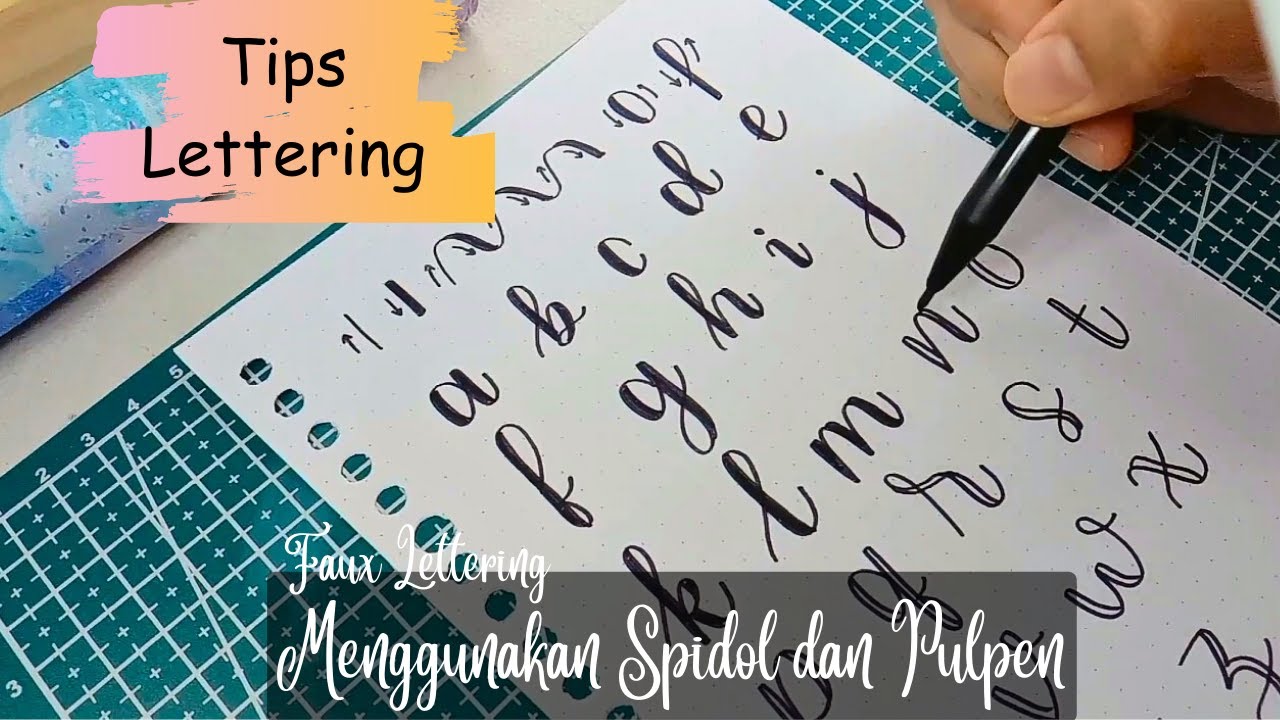 Tips
Lettering
a b c d e
f g h i j
k l m n o
q r s t
w x
z
5
4
3
2
3
Faux Lettering
Menggunakan Spidol dan Pulpen